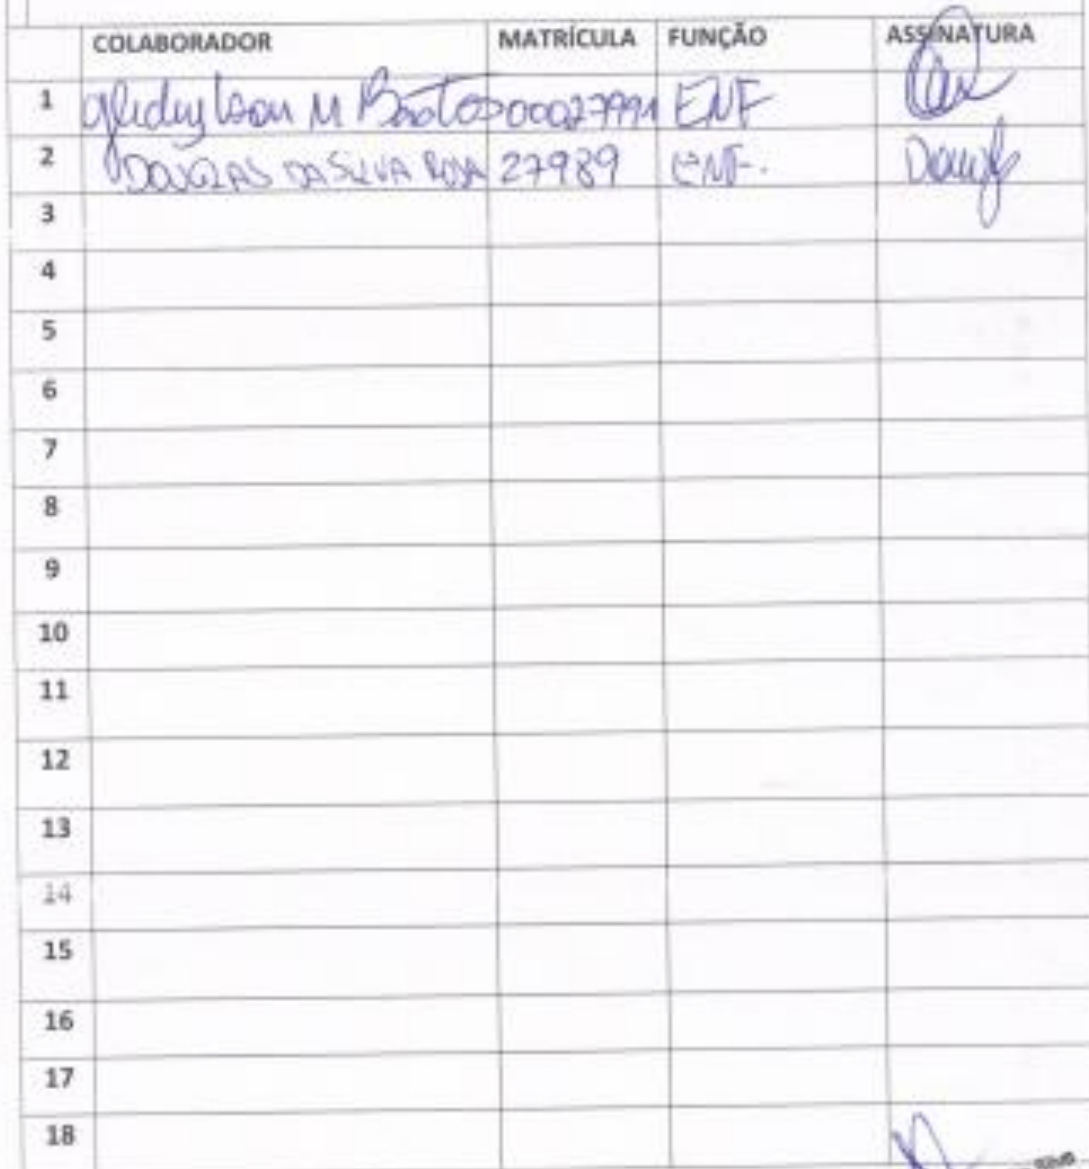 COLABORADOR MATRÍCULA FUNÇÃO ASSINATURA
1 M Bastos 000027991 ENF
2 DOUGLAS DA SILVA ROSA 27989 ENF. Dougl
3
4
5
6
7
8
9
10
11
12
13
14
15
16
17
18